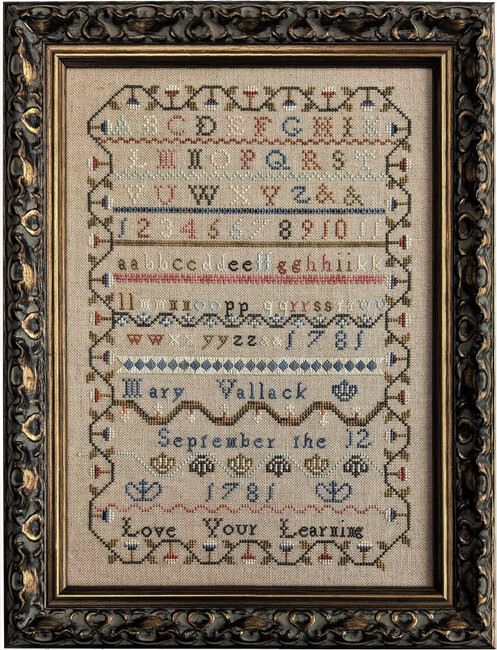 A B C D E F G H I K
L M N O P Q R S T
V U W X Y Z & &
1 2 3 4 6 5 7 8 9 10 11
aabbccddeeffgghhiikk
llmmnnooppqqrrssttvv
wwxxyyzz&& 1781
Mary Vallack
September the 12
1781
Love Your Learning